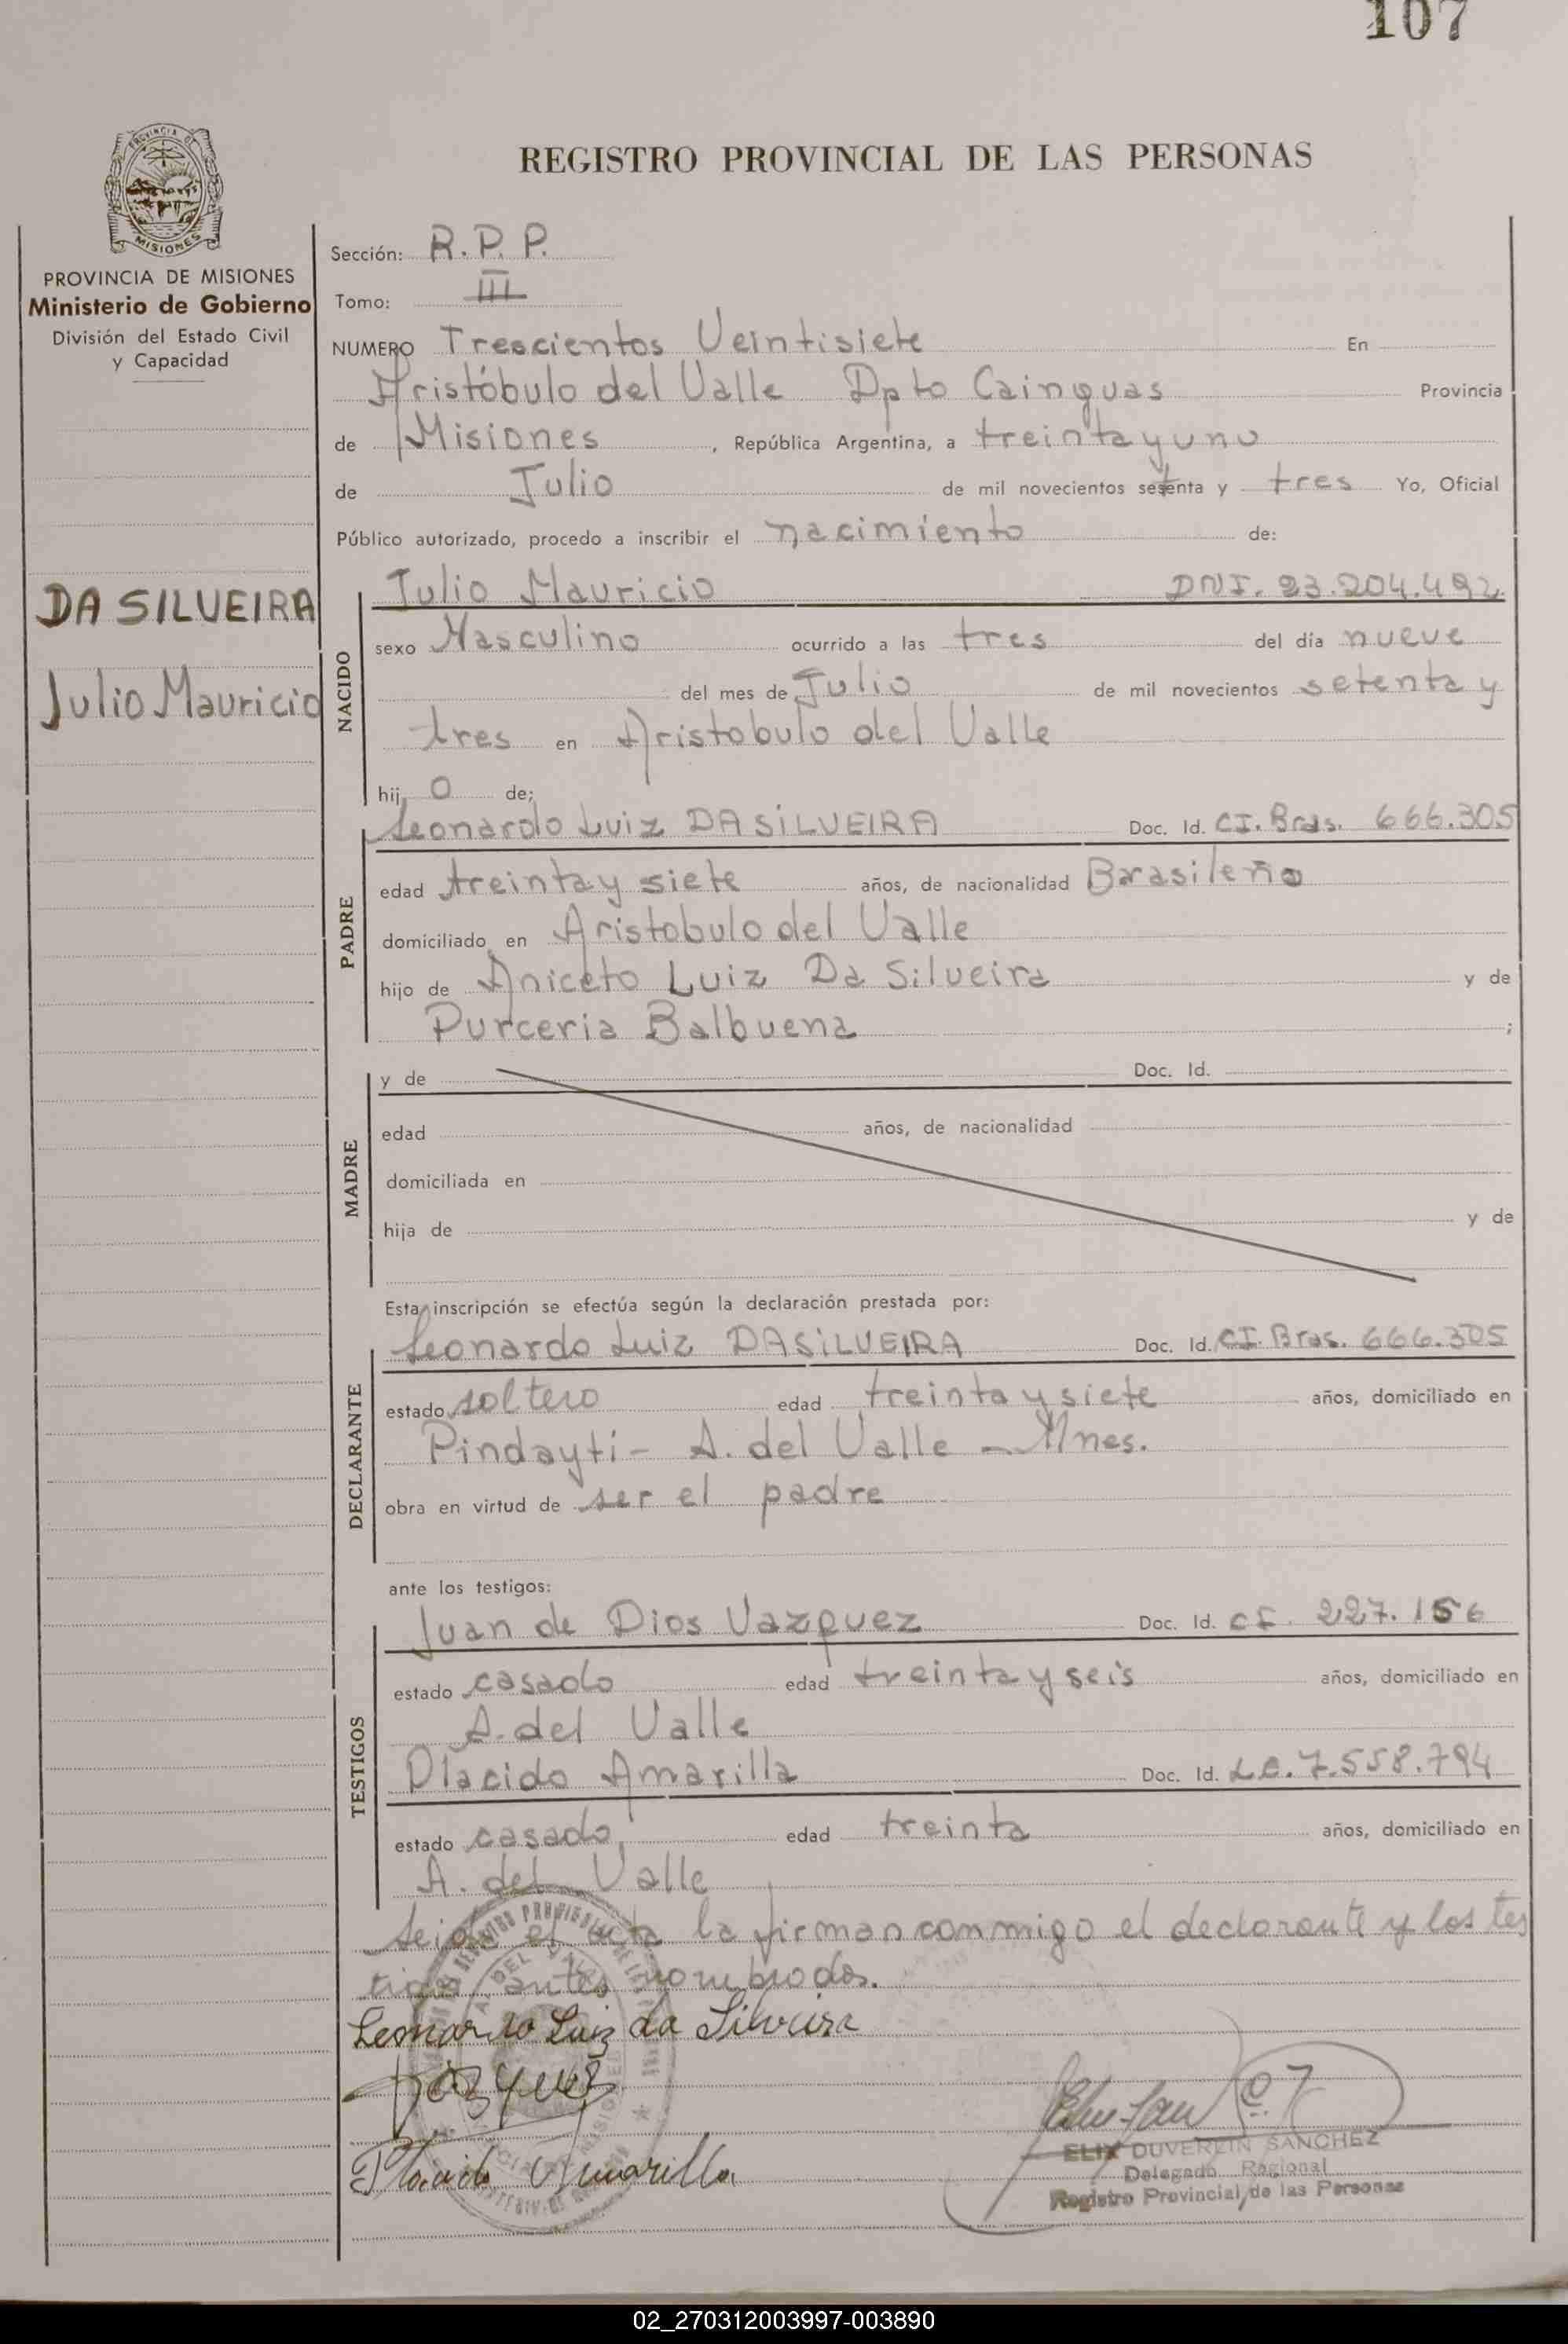 107
REGISTRO PROVINCIAL DE LAS PERSONAS
PROVINCIA DE MISIONES
Ministerio de Gobierno
División del Estado Civil
y Capacidad
DA SILVEIRA
Julio Mauricio
Sección: R.P.P.
Tomo: III
NUMERO Trescientos Veintisiete En
Aristóbulo del Valle Dpto Cainguas Provincia
de Misiones, República Argentina, a treinta y uno
de Julio de mil novecientos setenta y tres Yo, Oficial
Público autorizado, procedo a inscribir el nacimiento de:
NACIDO
Julio Mauricio DNI. 23.204.492
sexo Masculino ocurrido a las tres del día nueve
del mes de Julio de mil novecientos setenta y
tres en Aristobulo del Valle
hij o de;
PADRE
Leonardo Luiz DA SILVEIRA Doc. Id. CI. Bras. 666.305
edad treinta y siete años, de nacionalidad Brasileño
domiciliado en Aristobulo del Valle
hijo de Aniceto Luiz Da Silveira y de
Purceria Balbuena ;
MADRE
y de Doc. Id.
edad años, de nacionalidad
domiciliada en
hija de y de
Esta inscripción se efectúa según la declaración prestada por:
DECLARANTE
Leonardo Luiz DA SILVEIRA Doc. Id. CI. Bras. 666.305
estado soltero edad treinta y siete años, domiciliado en
Pindaytí - A. del Valle - Mnes.
obra en virtud de ser el padre
ante los testigos:
TESTIGOS
Juan de Dios Vazquez Doc. Id. CI. 227.156
estado casado edad treinta y seis años, domiciliado en
A. del Valle
Placido Amarilla Doc. Id. L.E. 7.558.794
estado casado, edad treinta años, domiciliado en
A. del Valle
Leida el acta la firman conmigo el declarante y los tes
tigos antes nombrados.
Leonardo Luiz da Silveira
Vazquez
Placido Amarilla
ELIX DUVERLIN SANCHEZ
Delegado Regional
Registro Provincial de las Personas
02_270312003997-003890